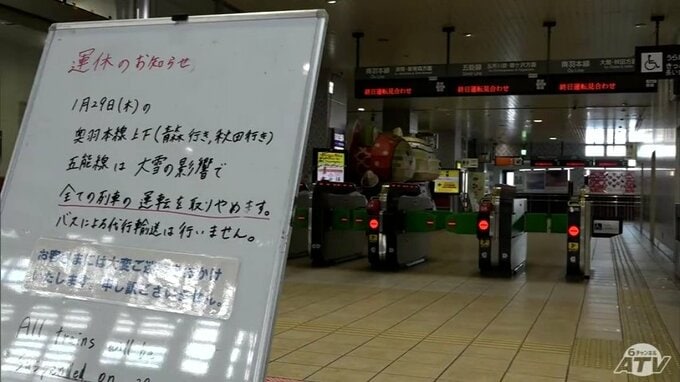 運休のお知らせ
1月29日(木)の
奥羽本線上下(青森行き,秋田行き)
五能線は大雪の影響で
全ての列車の運転を取りやめます。
バスによる代行輸送は行いません。
お客さまには大変ご迷惑をおかけ
たします 申し訳ございません。
All trains will be
suspended on
奥羽本線
五能線
奥羽本線
終日運転見合わせ
終日運転見合わせ
終日運転見合わせ
6チャンネル
ATV